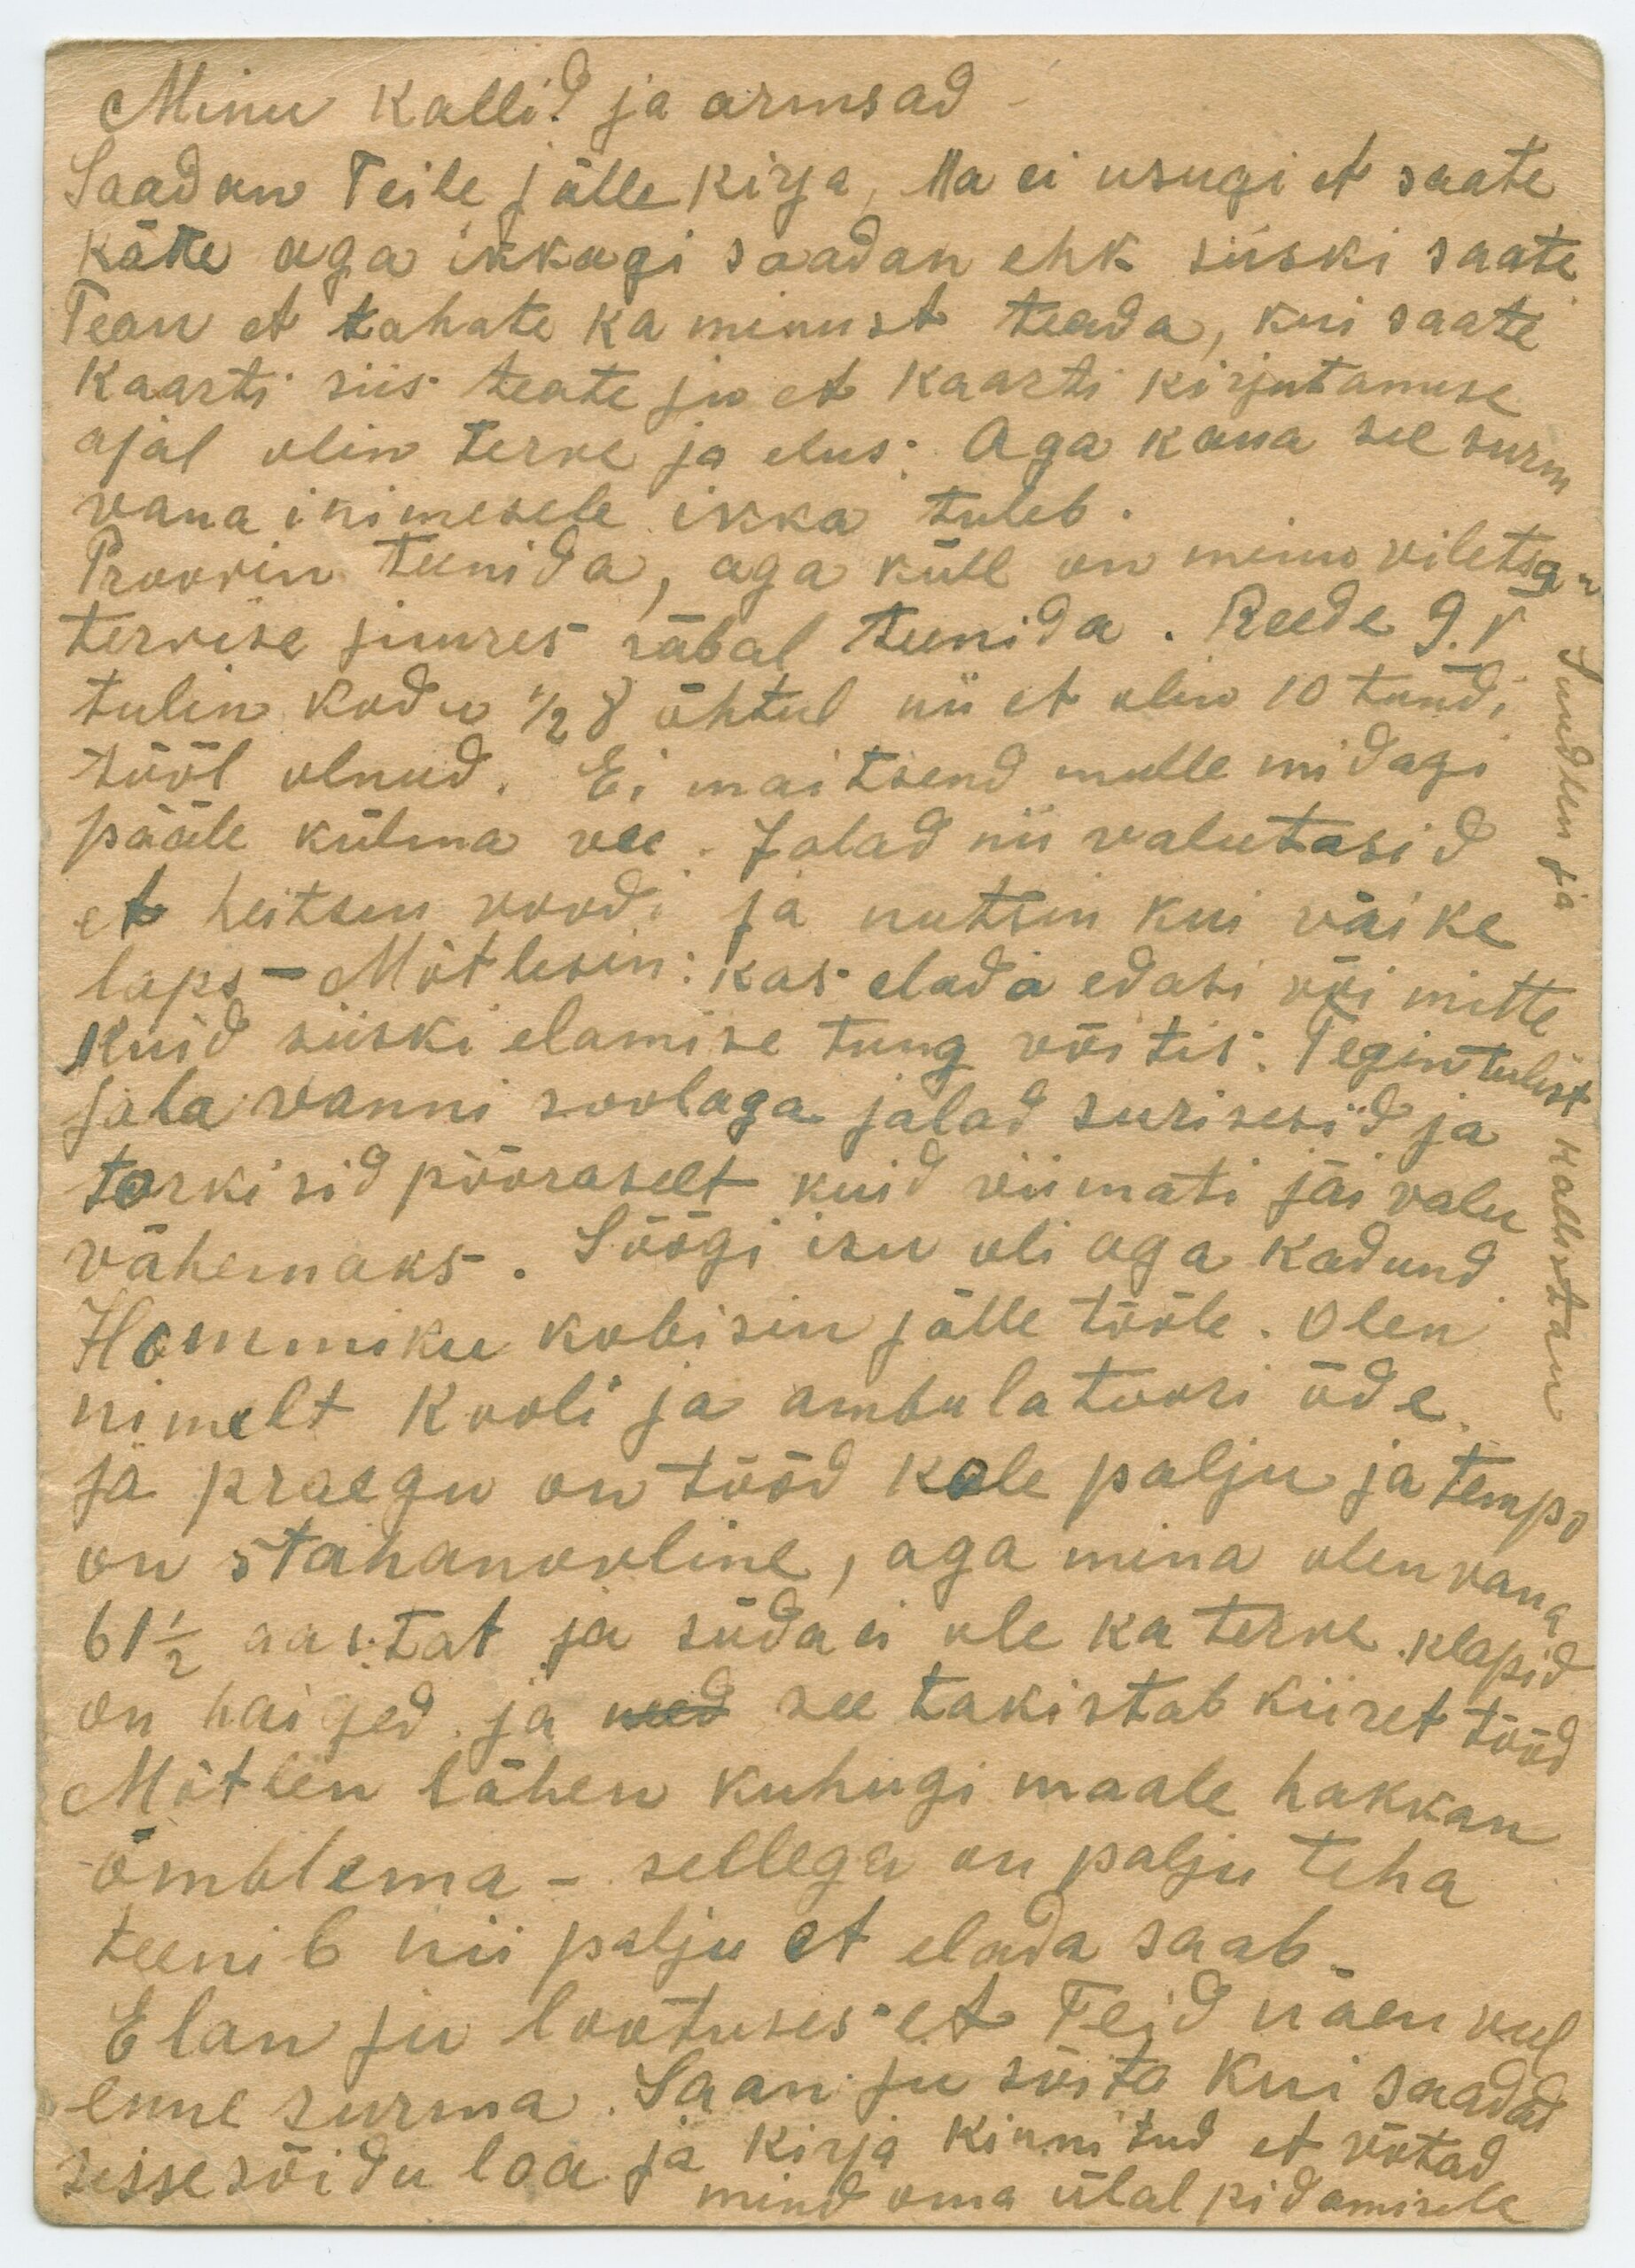 Minu kallid ja armsad -
Saadan Teile jälle kirja, Ma ei usugi et saate
kätte aga ikkagi saadan ehk siiski saate
Tean et tahate ka minust teada, kui saate
kaarti siis teate ju et kaarti kirjutamise
ajal olin terve ja elus. Aga kaua see surm
vana inimesele ikka tuleb.
Proovin teenida, aga küll on minu viletsa
tervise juures räbal teenida. Reede 9.V
tulin kodu ½ 8 õhtul nii et olin 10 tundi
tööl olnud. Ei maitsend mulle midagi
pääle külma vee. Jalad nii valutasid
et heitsin voodi ja nutsin kui väike
laps - Mõtlesin: kas elada edasi või mitte
Kuid siiski elamise tung võitis. Tegin tulist
jala vanni soolaga jalad surisesid ja
torkisid pööraselt kuid viimati jäi valu
vähemaks. Söögi isu oli aga kadund
Hommiku kobisin jälle tööle. Olen
nimelt kooli ja ambulatoori õde.
ja praegu on tööd kole palju ja tempo
on stahanovline, aga mina olen vana
61½ aastat ja süda ei ole ka terve. klapid
on haiged ja need see takistab kiiret tööd
Mõtlen lähen kuhugi maale hakkan
õmblema - sellega on palju teha
teenib nii palju et elada saab.
Elan ju lootuses et Teid näen veel
enne surma. Saan ju sõita kui saadad
sissesõidu loa ja kirja kinnitud et võtad
mind oma ülal pidamisele
Suudlen ja kallistan